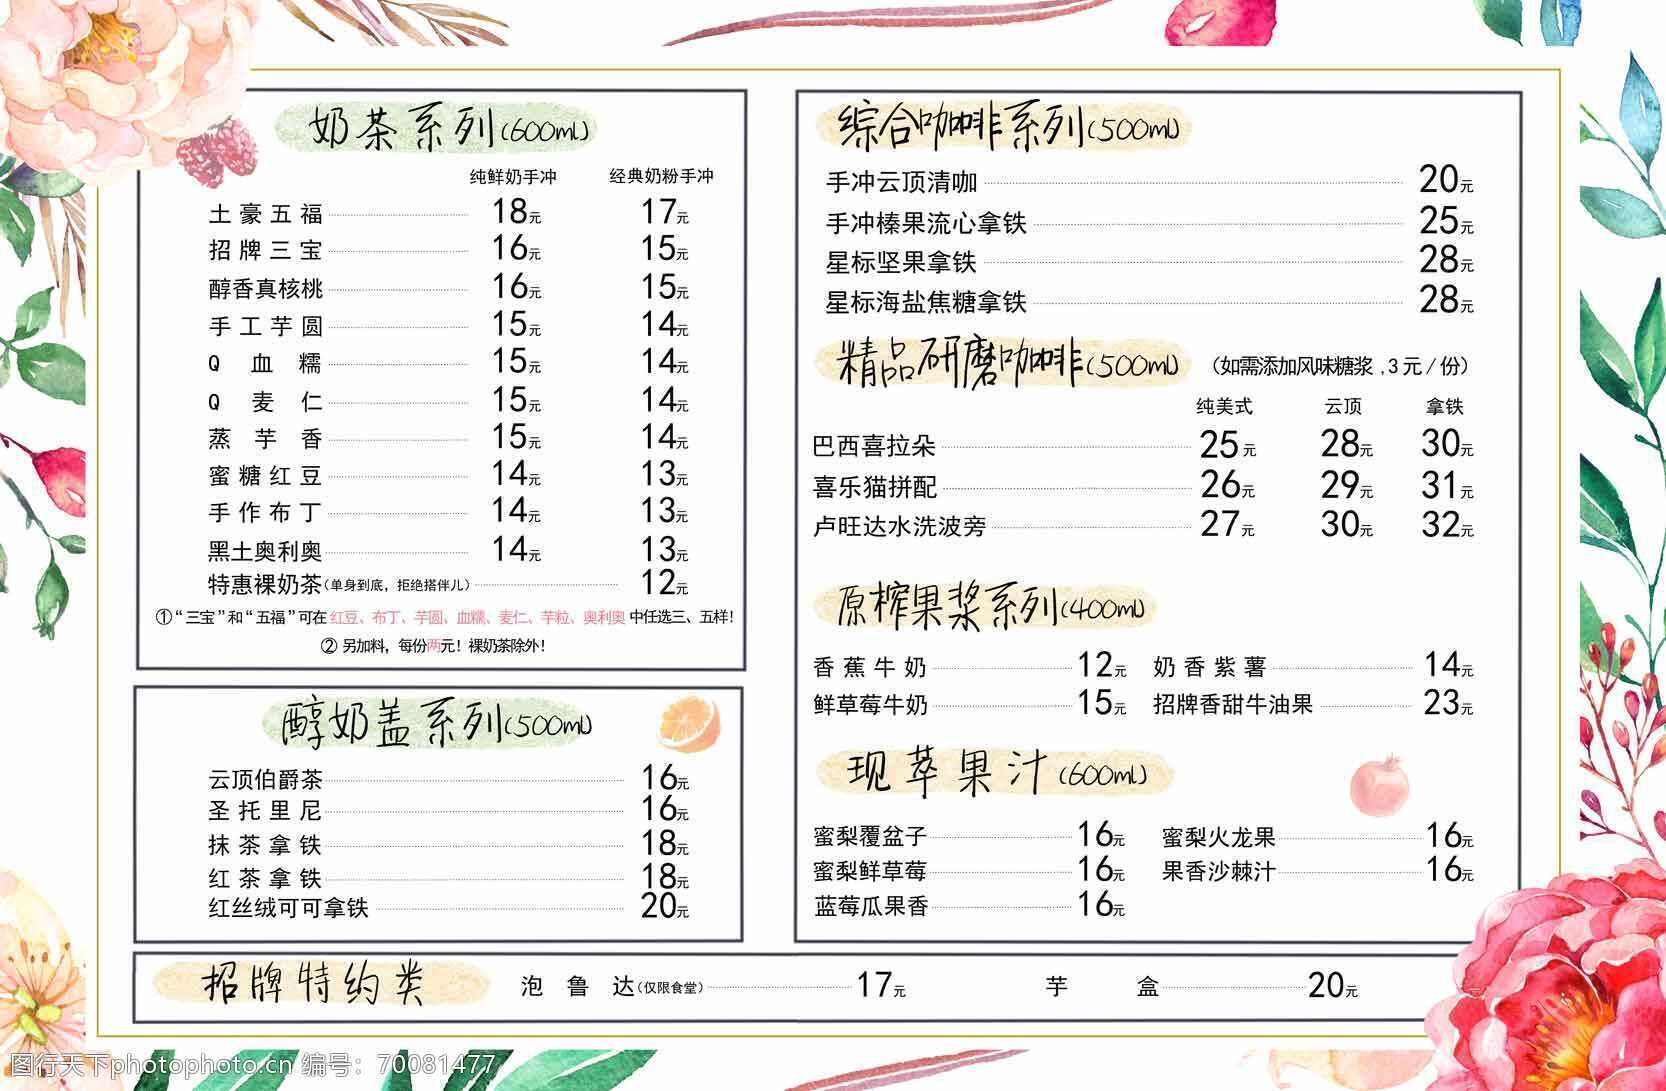 奶茶系列(600ml)
纯鲜奶手冲 经典奶粉手冲
土豪五福 18元 17元
招牌三宝 16元 15元
醇香真核桃 16元 15元
手工芋圆 15元 14元
Q血糯 15元 14元
Q麦仁 15元 14元
蒸芋香 15元 14元
蜜糖红豆 14元 13元
手作布丁 14元 13元
黑土奥利奥 14元 13元
特惠裸奶茶(单身到底，拒绝搭伴儿) 12元
①“三宝”和“五福”可在 红豆、布丁、芋圆、血糯、麦仁、芋粒、奥利奥 中任选三、五样！
② 另加料，每份两元！裸奶茶除外！
醇奶盖系列(500ml)
云顶伯爵茶 16元
圣托里尼 16元
抹茶拿铁 18元
红茶拿铁 18元
红丝绒可可拿铁 20元
综合咖啡系列(500ml)
手冲云顶清咖 20元
手冲榛果流心拿铁 25元
星标坚果拿铁 28元
星标海盐焦糖拿铁 28元
精品研磨咖啡(500ml) （如需添加风味糖浆,3元/份）
纯美式 云顶 拿铁
巴西喜拉朵 25元 28元 30元
喜乐猫拼配 26元 29元 31元
卢旺达水洗波旁 27元 30元 32元
原榨果浆系列(400ml)
香蕉牛奶 12元 奶香紫薯 14元
鲜草莓牛奶 15元 招牌香甜牛油果 23元
现萃果汁(600ml)
蜜梨覆盆子 16元 蜜梨火龙果 16元
蜜梨鲜草莓 16元 果香沙棘汁 16元
蓝莓瓜果香 16元
招牌特约类 泡鲁达(仅限食堂) 17元 芋盒 20元
图行天下photophoto.cn 编号：70081477